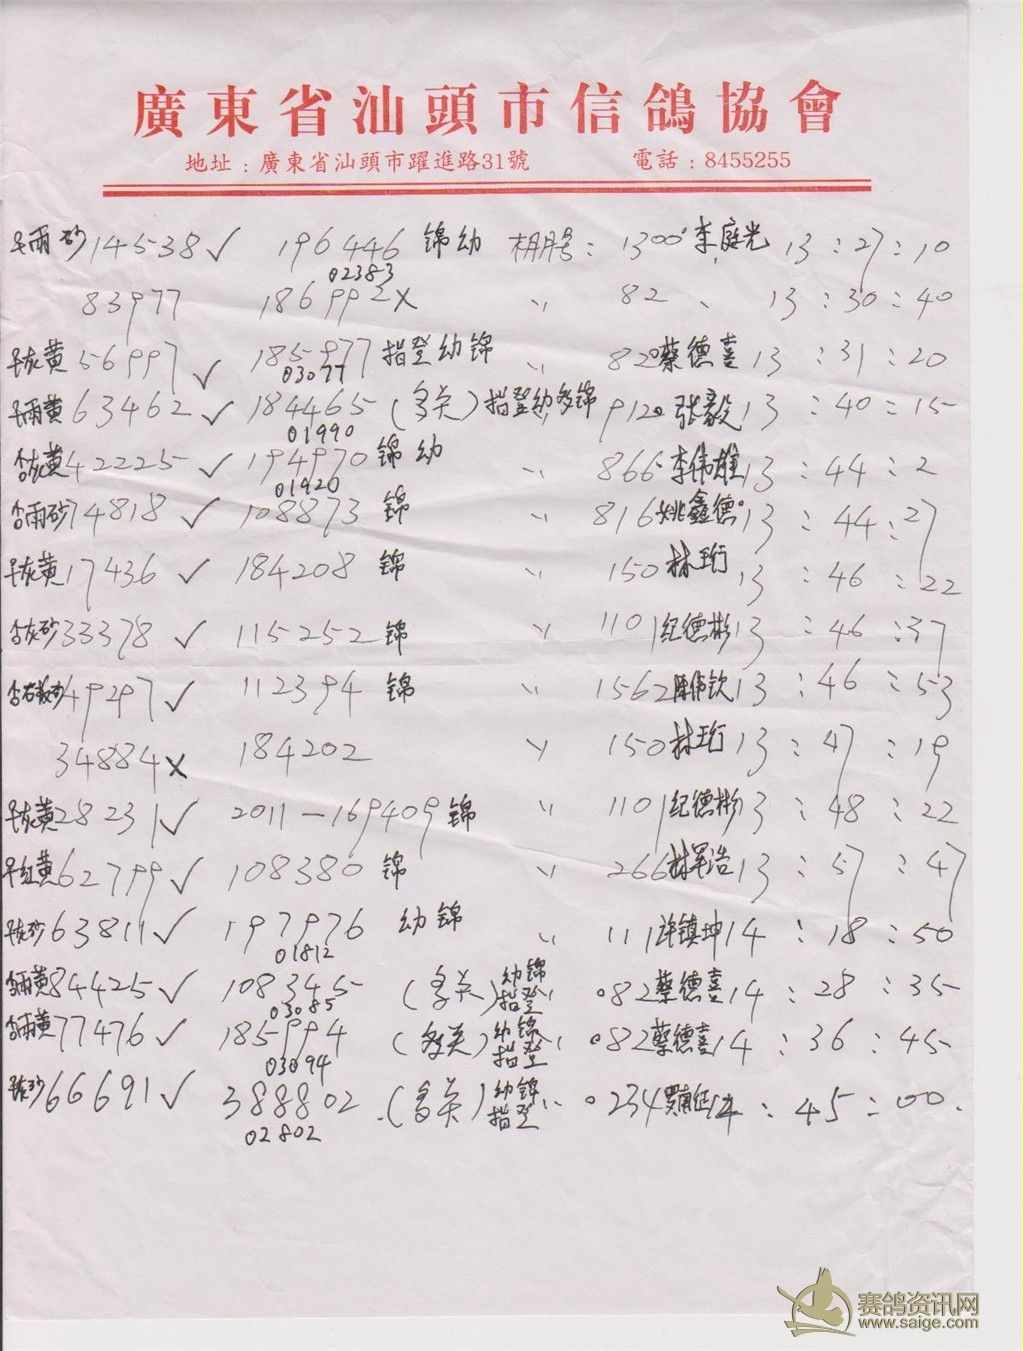 廣東省汕頭市信鴿協會
地址：廣東省汕頭市躍進路31號 電話：8455255
雨砂 14538 ✓ 196446 锦幼 棚号：1300 李庭光 13：27：10
02383
83977 186992 × 〃 82 13：30：40
灰黄 56997 ✓ 185977 指登幼锦 〃 820 蔡德喜 13：31：20
03077
雨黄 63462 ✓ 184465 (多关) 指登幼多锦 912 张毅 13：40：15
01990
灰黄 42225 ✓ 194970 锦幼 〃 866 李伟雄 13：44：2
01920
雨砂 74818 ✓ 108873 锦 〃 816 姚鑫德 13：44：27
灰黄 17436 ✓ 184208 锦 〃 150 林珩 13：46：22
灰砂 33378 ✓ 115252 锦 〃 1101 纪德彬 13：46：37
49297 ✓ 112394 锦 〃 1562 陈伟钦 13：46：53
34884 × 184202 〃 150 林珩 13：47：19
灰黄 28231 ✓ 2011－169409 锦 〃 1101 纪德彬 13：48：22
红黄 62799 ✓ 108380 锦 〃 266 林军浩 13：57：47
灰砂 63811 ✓ 197976 幼锦 〃 111 许镇坤 14：18：50
01812
雨黄 84425 ✓ 108345 (多关) 幼锦指登 〃 082 蔡德喜 14：28：35
03085
雨黄 77476 ✓ 185994 (多关) 幼锦指登 〃 082 蔡德喜 14：36：45
03094
66691 ✓ 388802 (多关) 幼锦指登 〃 0234 14：45：00
02802
赛鸽资讯网
www.saige.com